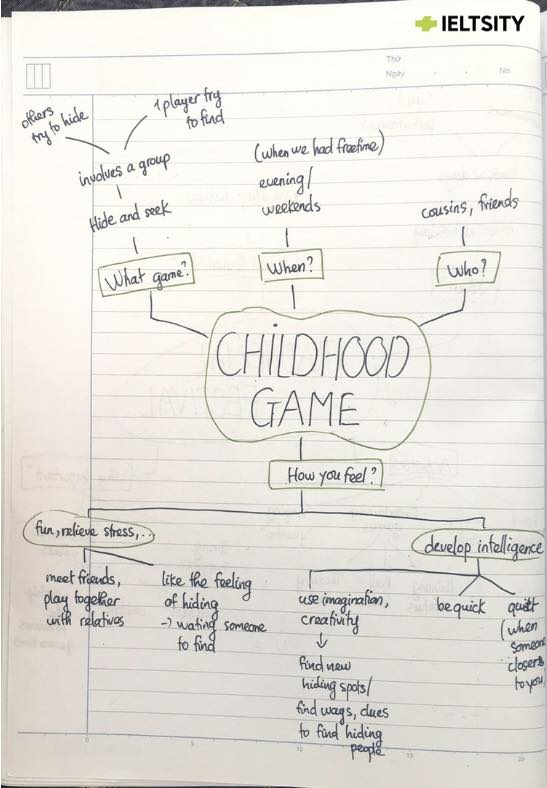 IELTSITY
Thứ
Ngày
No.
others
try to hide
1 player try
to find
involves a group
Hide and seek
What game?
(When we had freetime)
evening/
weekends
When?
cousins, friends
Who?
CHILDHOOD
GAME
How you feel?
fun, relieve stress,..
meet friends,
play together
with relatives
like the feeling
of hiding
-) wating someone
to find
develop intelligence
use imagination,
creativity
↓
find new
hiding spots/
find ways, clues
to find hiding
people
be quick
quiet
(when
someone
closers
to you,
0
10
15
20